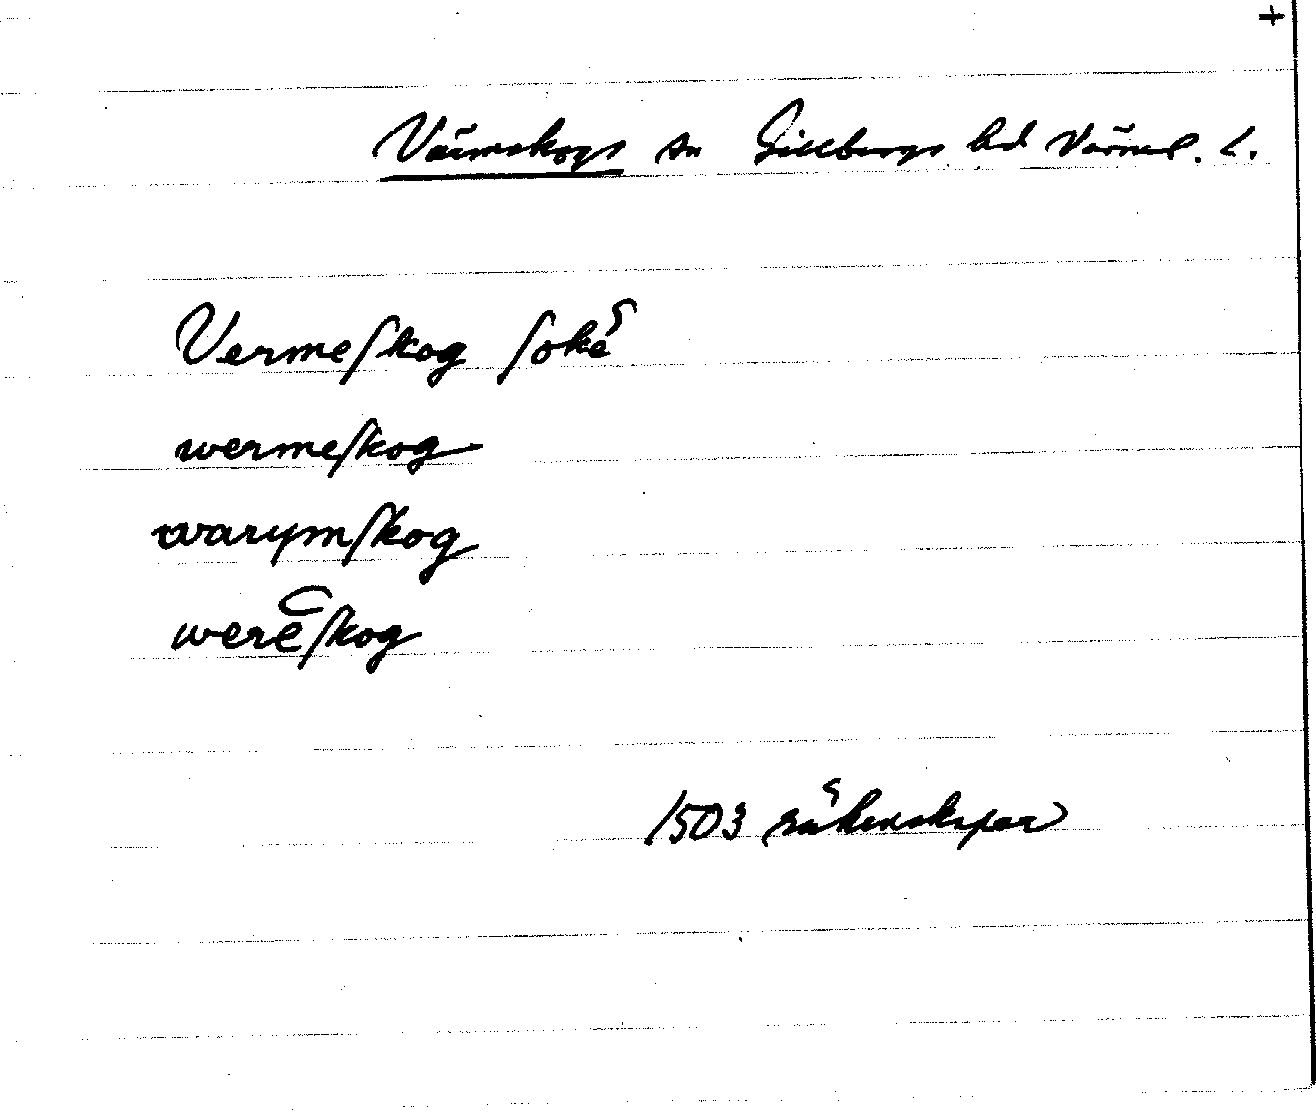 +
Värmskogs sn Gillbergs hd Värml. L.
Vermeſkog ſoke
wermeſkog
warymſkog
wereſkog
1503 räkenskaper